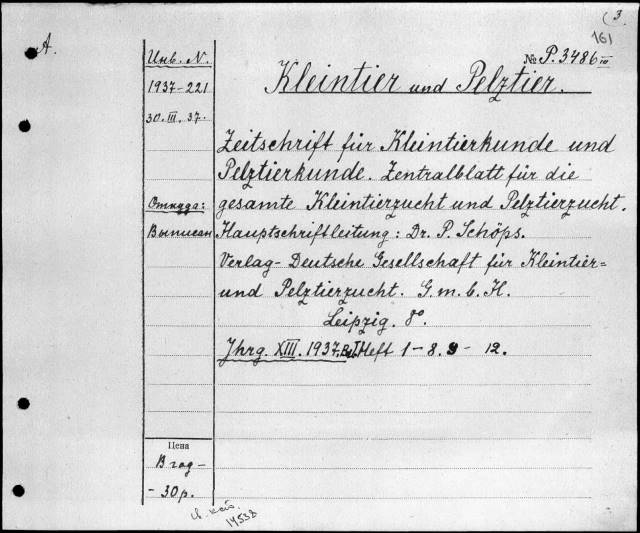 (3.
161
A.
№ P. 3486 III
Kleintier und Pelztier.
Инв. N.
1937-221
30. III. 37.
Откуда:
Выписан
Zeitschrift für Kleintierkunde und
Pelztierkunde. Zentralblatt für die
gesamte Kleintierzucht und Pelztierzucht.
Hauptschriftleitung: Dr. P. Schöps.
Verlag- Deutsche Gesellschaft für Kleintier=
und Pelztierzucht. G. m. b. H.
Leipzig. 8°.
Jhrg. XIII. 1937. Heft 1 - 8. 9 - 12.
Цена
В год -
- 30 р.
14538